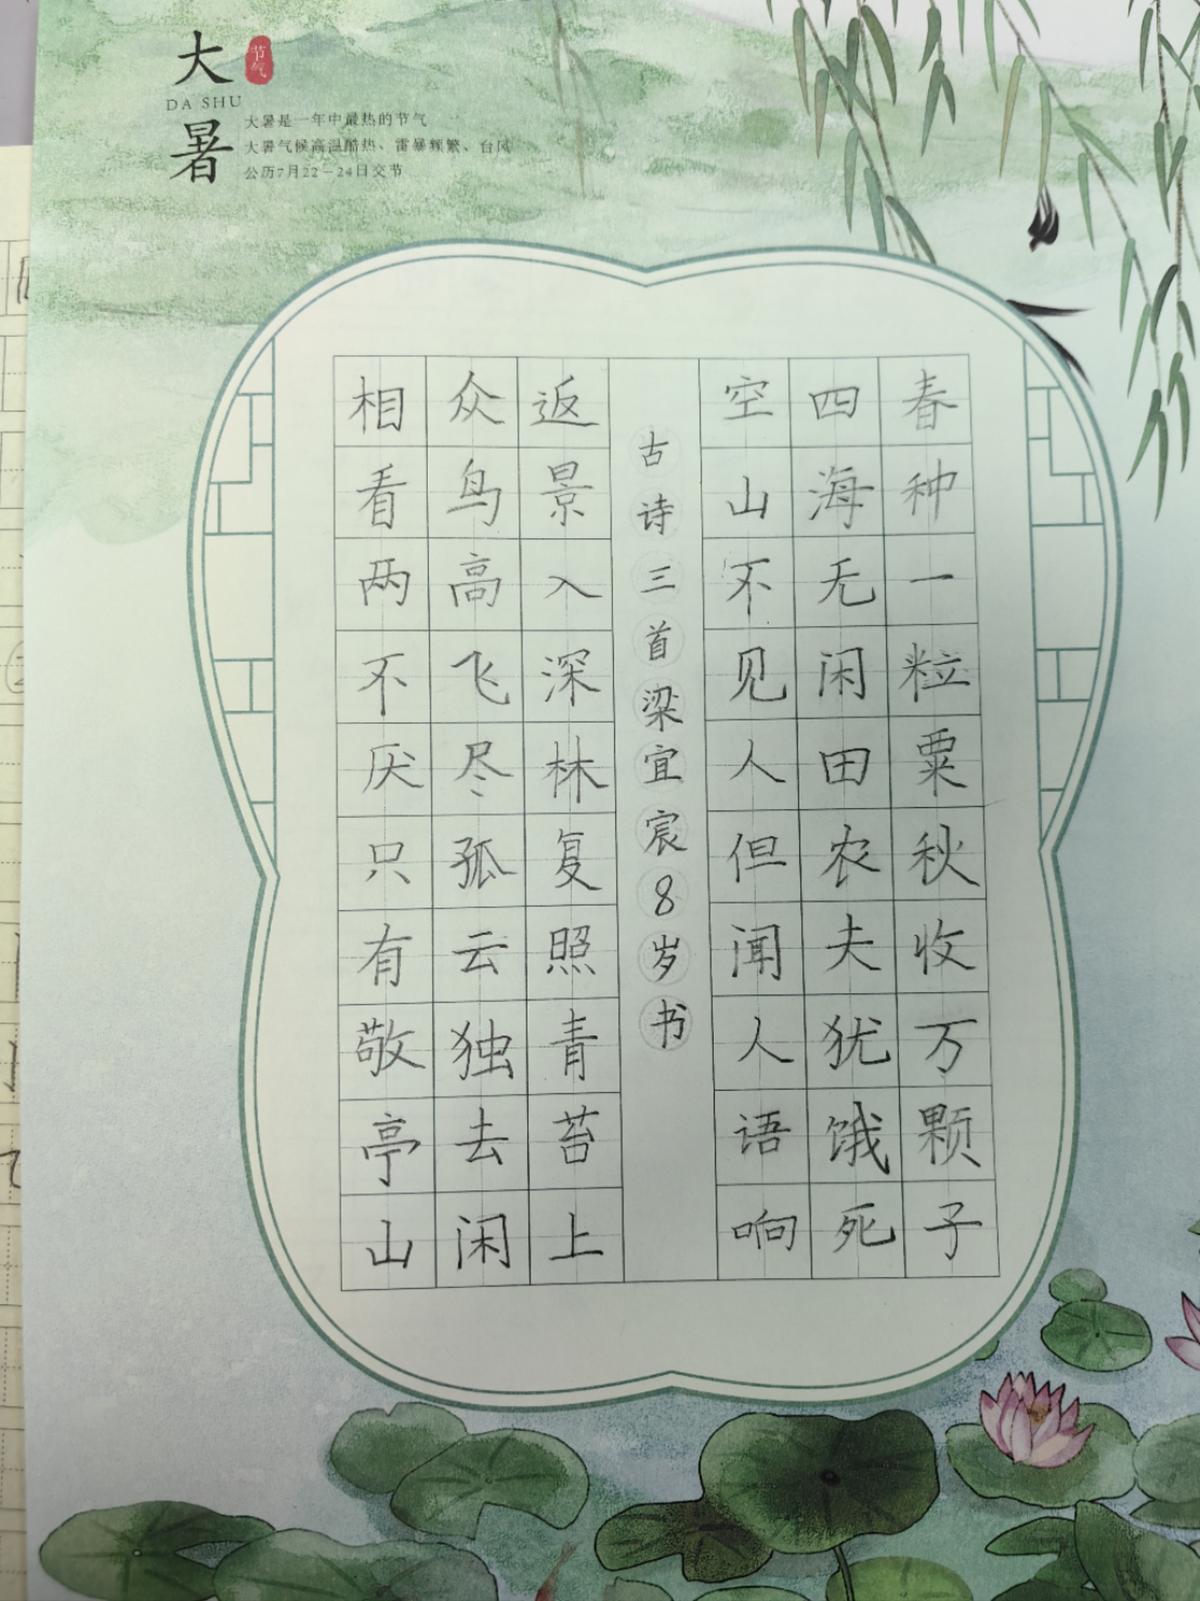 大暑
节气
DA SHU
大暑是一年中最热的节气
大暑气候高温酷热、雷暴频繁、台风
公历7月22-24日交节
春种一粒粟秋收万颗子
四海无闲田农夫犹饿死
空山不见人但闻人语响
古诗三首梁宜宸8岁书
返景入深林复照青苔上
众鸟高飞尽孤云独去闲
相看两不厌只有敬亭山